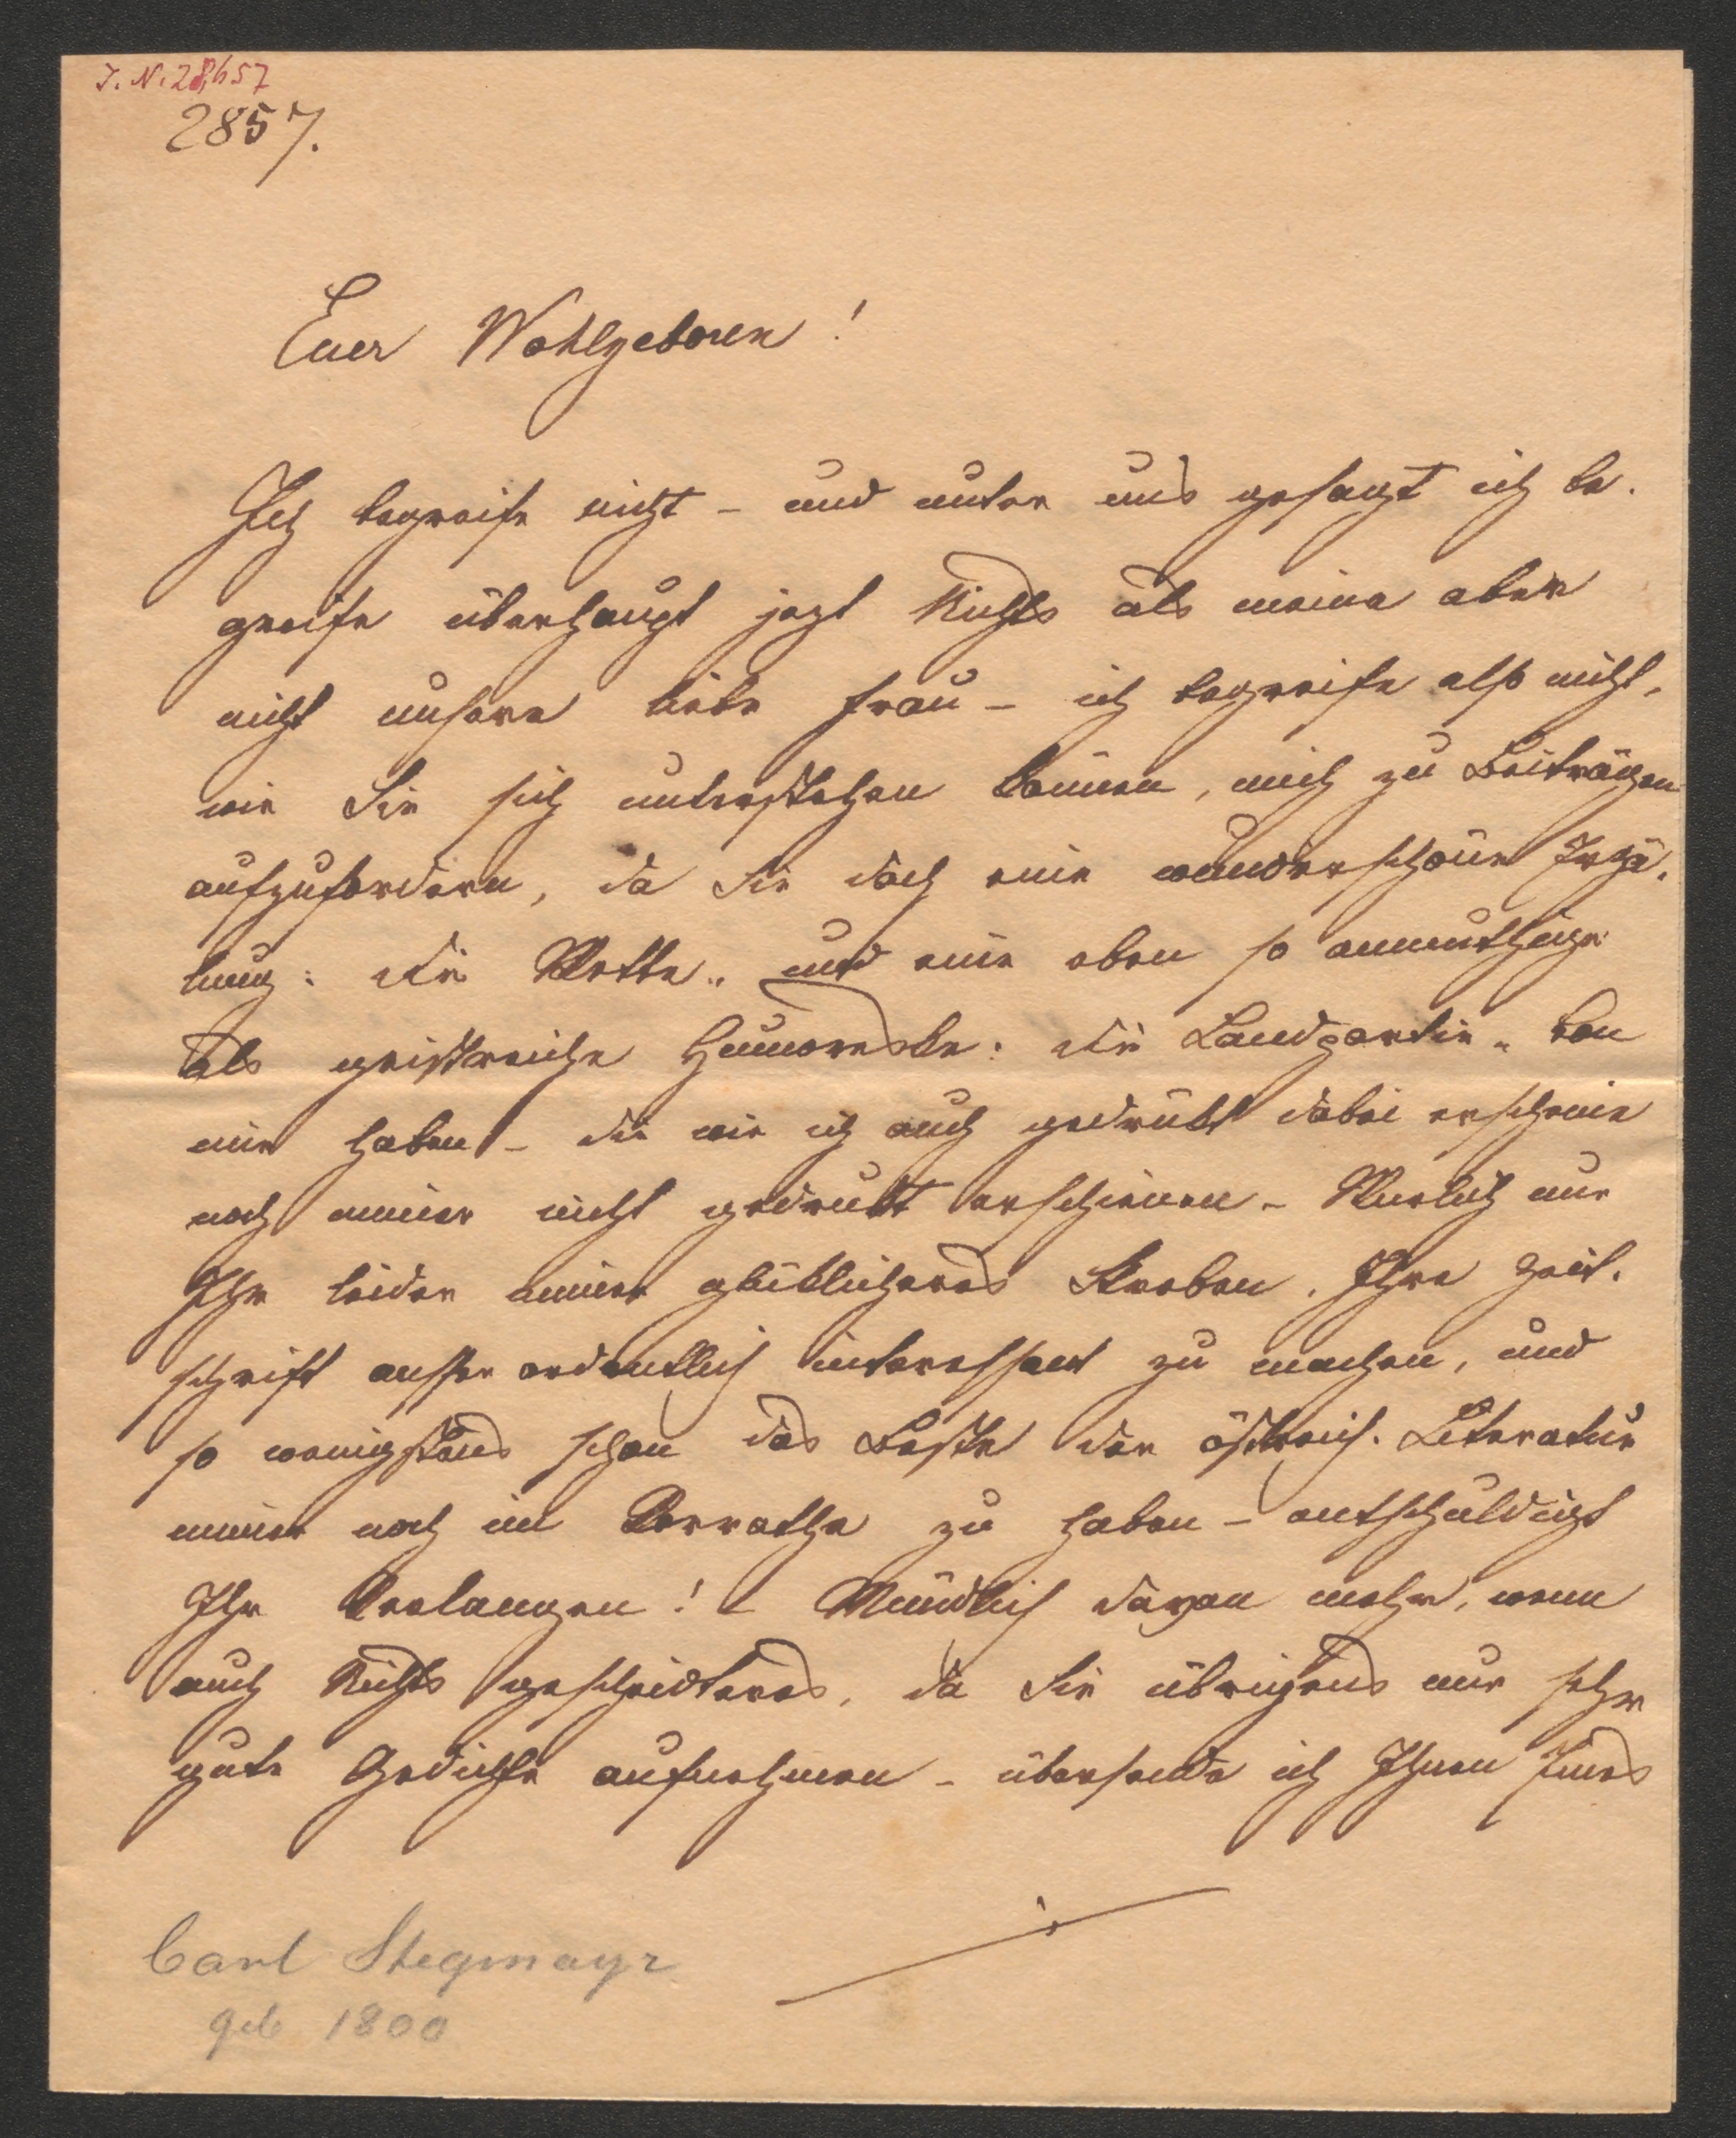 J. N. 28,657
2857.
Euer Wohlgeboren!
Ich begreife nicht – und unter uns gesagt ich be-
greife überhaupt jezt Nichts als meine aber
nicht unsere liebe Frau – ich begreife also nicht,
wie Sie sich unterstehen können, mich zu Beiträgen
aufzufordern, da Sie doch eine wunderschöne Erzä-
lung: die Wette" und eine eben so anmuthige
als geistreiche Humoreske: die Landpartie" von
mir haben – die wie ich auch gedrukt dabei erscheine
noch immer nicht gedrukt erschienen – nur
Ihr leider immer glüklicheres Streben, Ihre Zeit-
schrift ausser ordentlich interessant zu machen, und
so wenigstens schon das Beste der östreich. Literatur
immer noch im Vorrathe zu haben – entschuldigt
Ihr Verlangen! – Mündlich davon mehr, wenn
auch Nichts gescheidteres, da Sie übrigens nur sehr
gute Gedichte aufnehmen – übersende ich Ihnen Eines
Carl Stegmayr
geb 1800